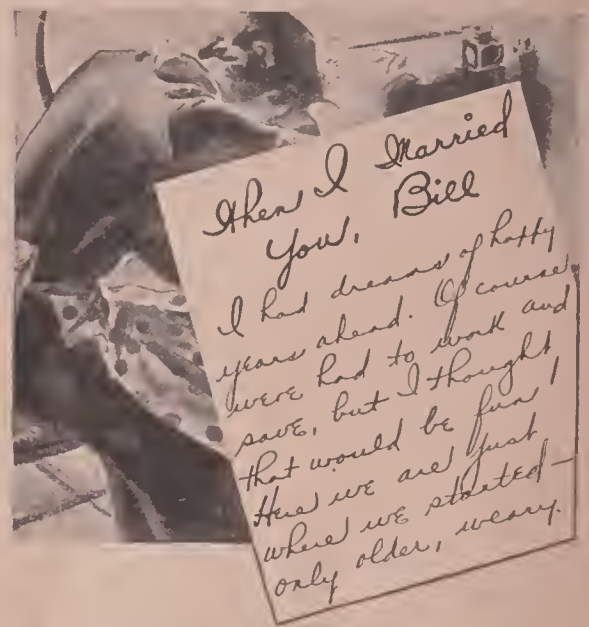 When I Married
You, Bill
I had dreams of happy
years ahead. Of course
were had to work and
save, but I thought
that would be fun!
Here we are just
where we started—
only older, weary.